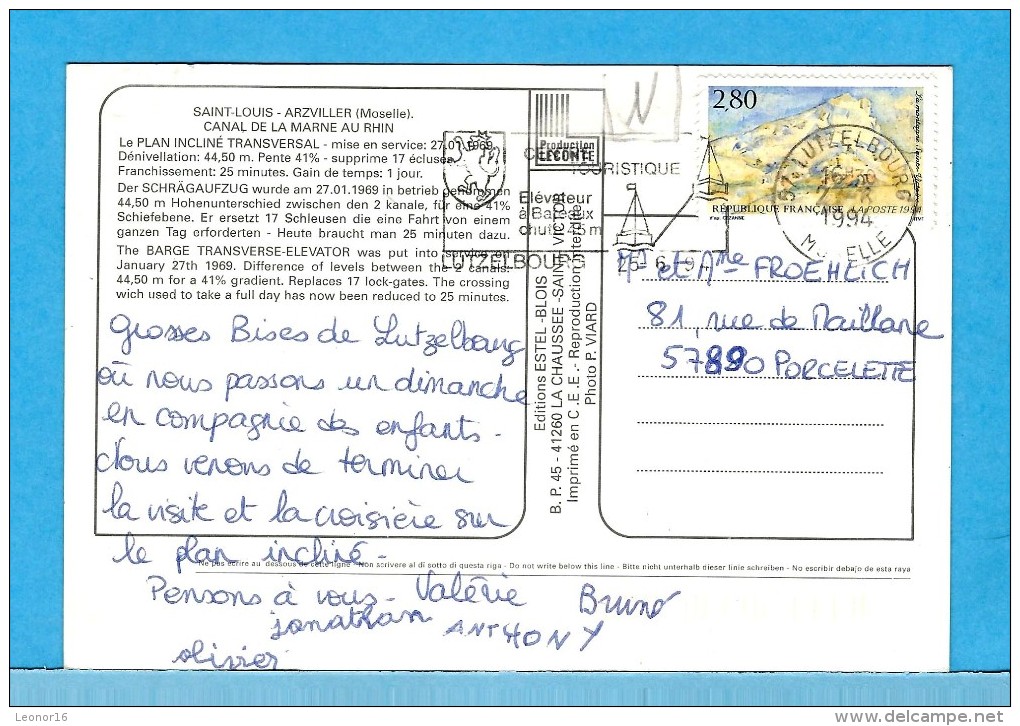 SAINT-LOUIS - ARZVILLER (Moselle).
CANAL DE LA MARNE AU RHIN
Le PLAN INCLINÉ TRANSVERSAL - mise en service: 27.01.1969.
Dénivellation: 44,50 m. Pente 41% - supprime 17 écluses
Franchissement: 25 minutes. Gain de temps: 1 jour.
Der SCHRÄGAUFZUG wurde am 27.01.1969 in betrieb genommen
44,50 m Hohenunterschied zwischen den 2 kanale, für eine 41%
Schiefebene. Er ersetzt 17 Schleusen die eine Fahrt von einem
ganzen Tag erforderten - Heute braucht man 25 minuten dazu.
The BARGE TRANSVERSE-ELEVATOR was put into service on
January 27th 1969. Difference of levels between the 2 canals:
44,50 m for a 41% gradient. Replaces 17 lock-gates. The crossing
wich used to take a full day has now been reduced to 25 minutes.
grosses Bises de Lutzelbourg
où nous passons un dimanche
en compagnie des enfants.
Nous venons de terminer
la visite et la croisière sur
le plan incliné.
Ne pas écrire au dessous de cette ligne - Non scrivere al di sotto di questa riga - Do not write below this line - Bitte nicht unterhalb dieser linie schreiben - No escribir debajo de esta raya
Pensons à vous. Valérie Bruno
jonathan ANTHONY
olivier
Production
LECONTE
N
TOURISTIQUE
Elévateur
à Bateaux
chute 45 m
LUTZELBOURG
25-6-94
Editions ESTEL - BLOIS
B. P. 45 - 41260 LA CHAUSSEE - SAINT-VICTOR
Imprimé en C.E.E. - Reproduction interdite
Photo P. VIARD
2,80
RÉPUBLIQUE FRANÇAISE LA POSTE 1994
57 LUTZELBOURG
1994
MOSELLE
Mr et Mme FROEHLICH
81, rue de Maillane
57890 PORCELETTE
Leonor16
www.delcampe.net